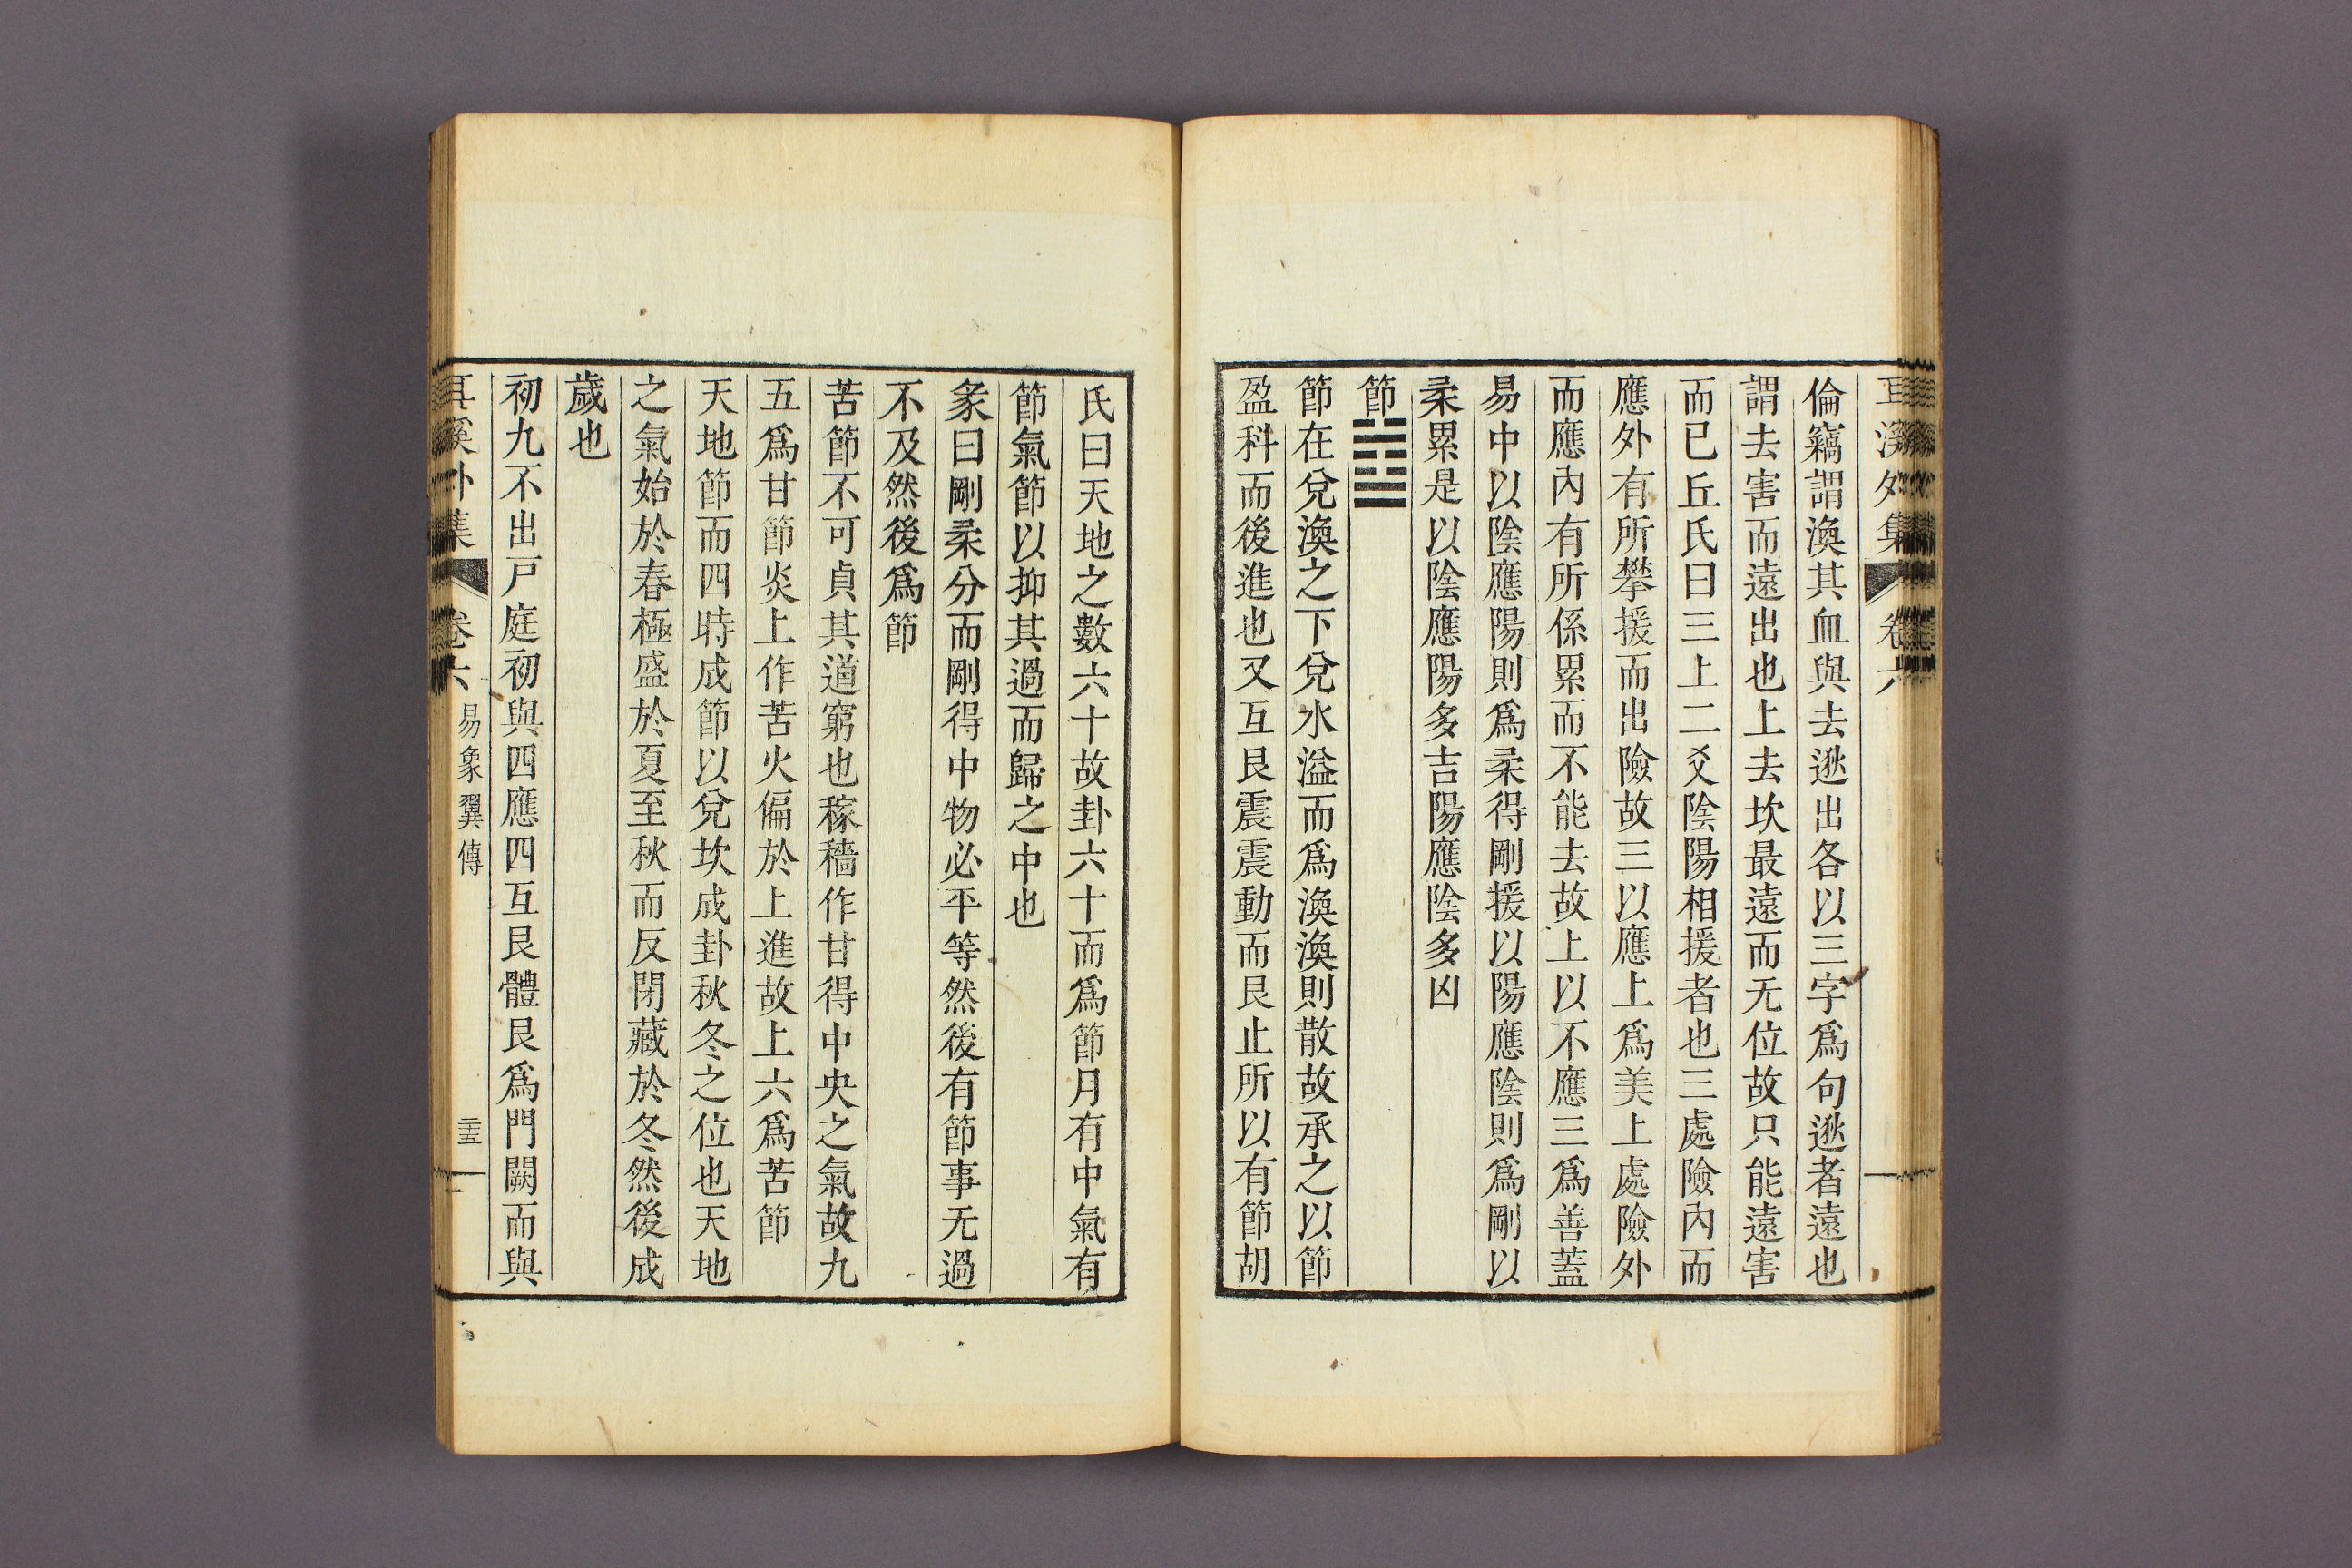 耳溪外集 卷六
倫竊謂渙其血與去逖出各以三字爲句逖者遠也
謂去害而遠出也上去坎最遠而无位故只能遠害
而已丘氏曰三上二爻陰陽相援者也三處險內而
應外有所攀援而出險故三以應上爲美上處險外
而應內有所係累而不能去故上以不應三爲善蓋
易中以陰應陽則爲柔得剛援以陽應陰則爲剛以
柔累是以陰應陽多吉陽應陰多凶
節䷻
節在兌渙之下兌水溢而爲渙渙則散故承之以節
盈科而後進也又互艮震震動而艮止所以有節胡
氏曰天地之數六十故卦六十而爲節月有中氣有
節氣節以抑其過而歸之中也
彖曰剛柔分而剛得中物必平等然後有節事无過
不及然後爲節
苦節不可貞其道窮也稼穡作甘得中央之氣故九
五爲甘節炎上作苦火偏於上進故上六爲苦節
天地節而四時成節以兌坎成卦秋冬之位也天地
之氣始於春極盛於夏至秋而反閉藏於冬然後成
歲也
初九不出戸庭初與四應四互艮體艮爲門闕而與
耳溪外集 卷六 易象翼傳 二十五